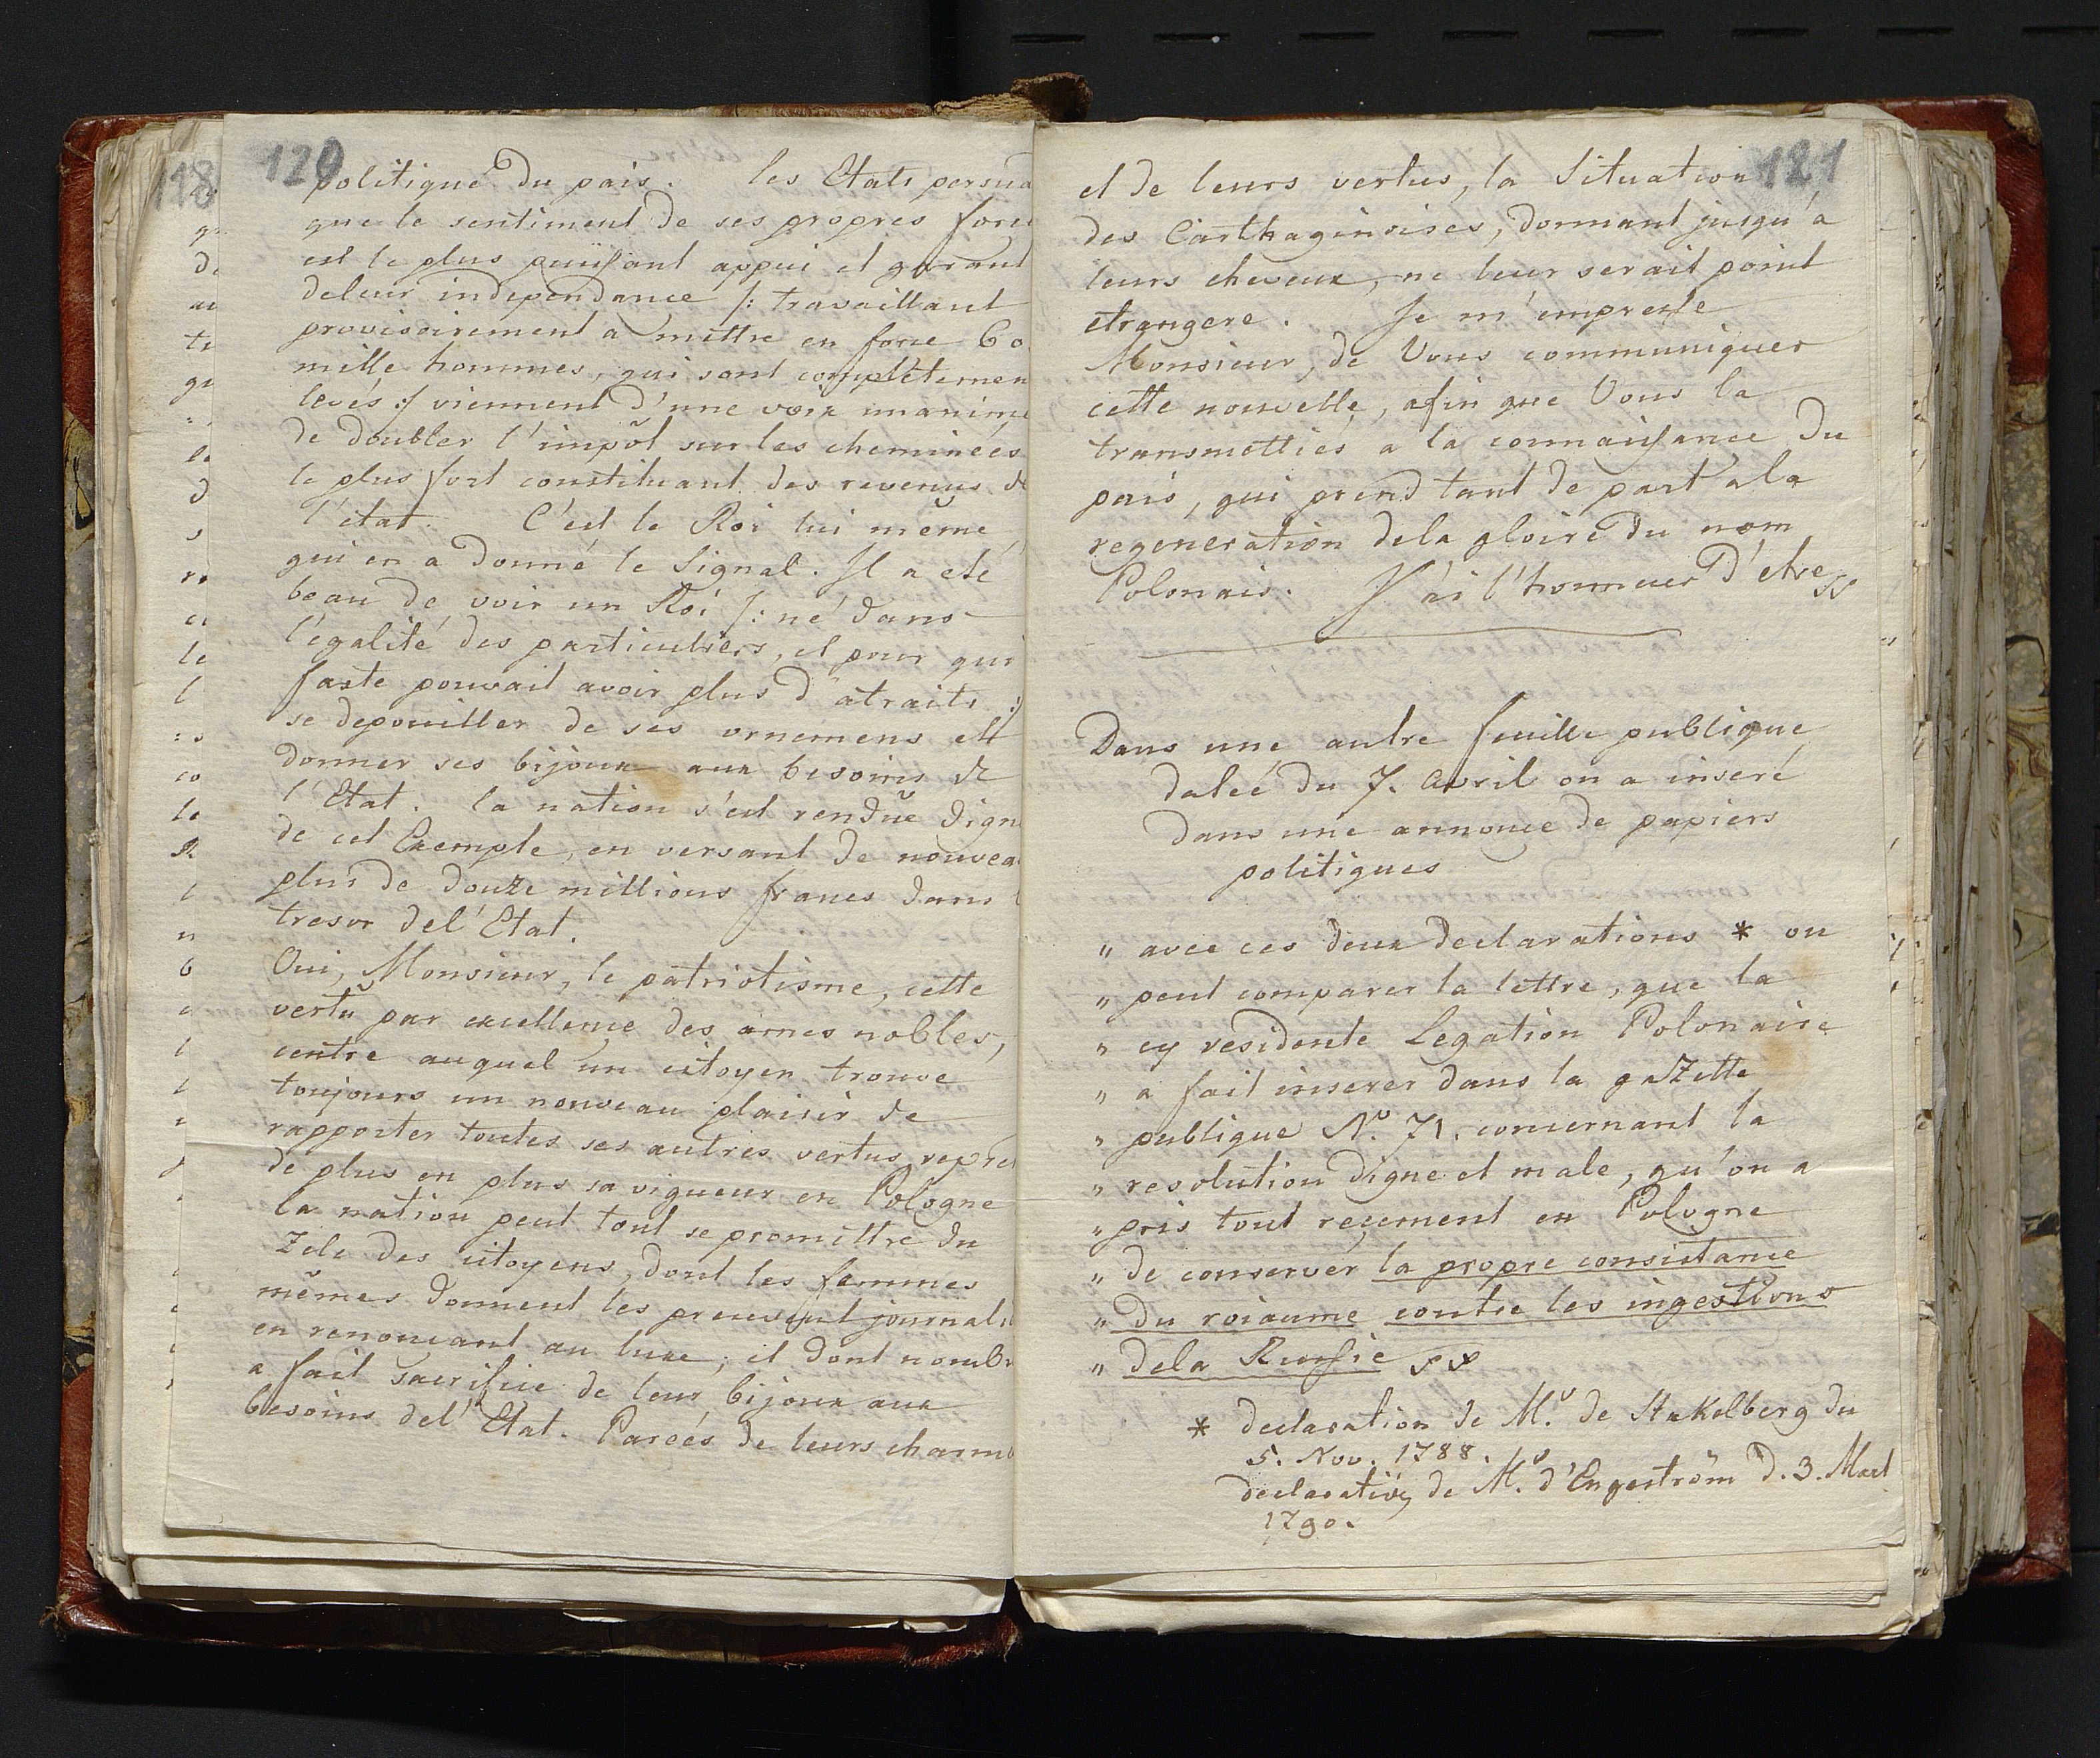 120
politique du païs. les Etats persua
que le sentiment de ses propres force
est le plus puissant appui et garant
deleur independance /: travaillant
provisoirement a mettre en force 60
mille hommes, qui sont complètemen
levés :/ viennent d'une voix unanime
de doubler l'impôt sur les cheminées
le plus fort constituant des revenus de
l'état. C'est le Roi lui même,
qui en a donné le Signal. Il a eté
beau de voir un Roi /: né dans
l'égalité des particuliers, et pour qui
faste pouvait avoir plus d'atraits :/
se depouiller de ses ornemens et
donner ses bijoux aux besoins de
l'Etat. la nation s'est rendue dign
de cet Exemple, en versant de nouvea
plus de douze millions francs dans l
tresor del'Etat.
Oui, Monsieur, le patriotisme, cette
vertu par excellence des ames nobles,
centre auquel un citoyen trouve
toujours un nouveau plaisir de
rapporter toutes ses autres vertus repre
de plus en plus sa vigueur en Pologne
la nation peut tout se promettre du
Zele des citoyens, dont les femmes
mêmes donnent les preuves journali
en renoncant au luxe; et dont nombr
a fait sacrifice de leur bijoux aux
besoins del'Etat. Parées de leurs charme
121
et de leurs vertus, la Situation
des Carthaginoises, donnant jusqu'a
leurs cheveux, ne leur serait point
etrangere. Je m'empresse
Monsieur, de Vous communiquer
cette nouvelle, afin que Vous la
transmettiés a la connaissance du
païs, qui prend tant de part ala
regeneration dela gloire du nom
Polonais. J'ai l'honneur d'etre
Dans une autre feuille publique
datée du 7. Avril on a inseré
dans une annonce de papiers
politiques
" avec ces deux declarations * on
" peut comparer la lettre, que la
" cy residente Legation Polonaise
" a fait inserer dans la gazette
" publique No. 71. concernant la
" resolution digne et male, qu'on a
" pris tout recement en Pologne
" de conserver la propre consistance
" du roiaume contre les ingestions
" dela Russie
* declaration de Mr. de Stakelberg du
5. Nov. 1788.
declaration de Mr. d'Engeström d. 3. Mart
1790.
118